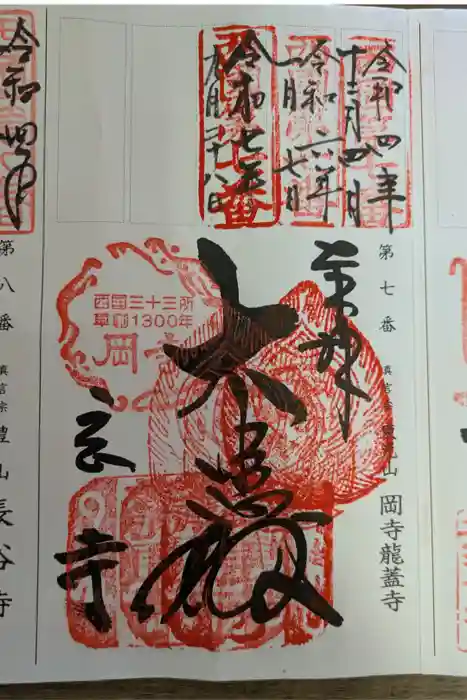 令和4年
十二月四日
令和六年
一月七日
令和七年
九月二十八日
第七番 真言宗 東光山 岡寺龍蓋寺
奉拝
大悲殿
西国三十三所
草創1300年
岡
岡寺
令和四年
第八番 真言宗 豊山 長谷寺